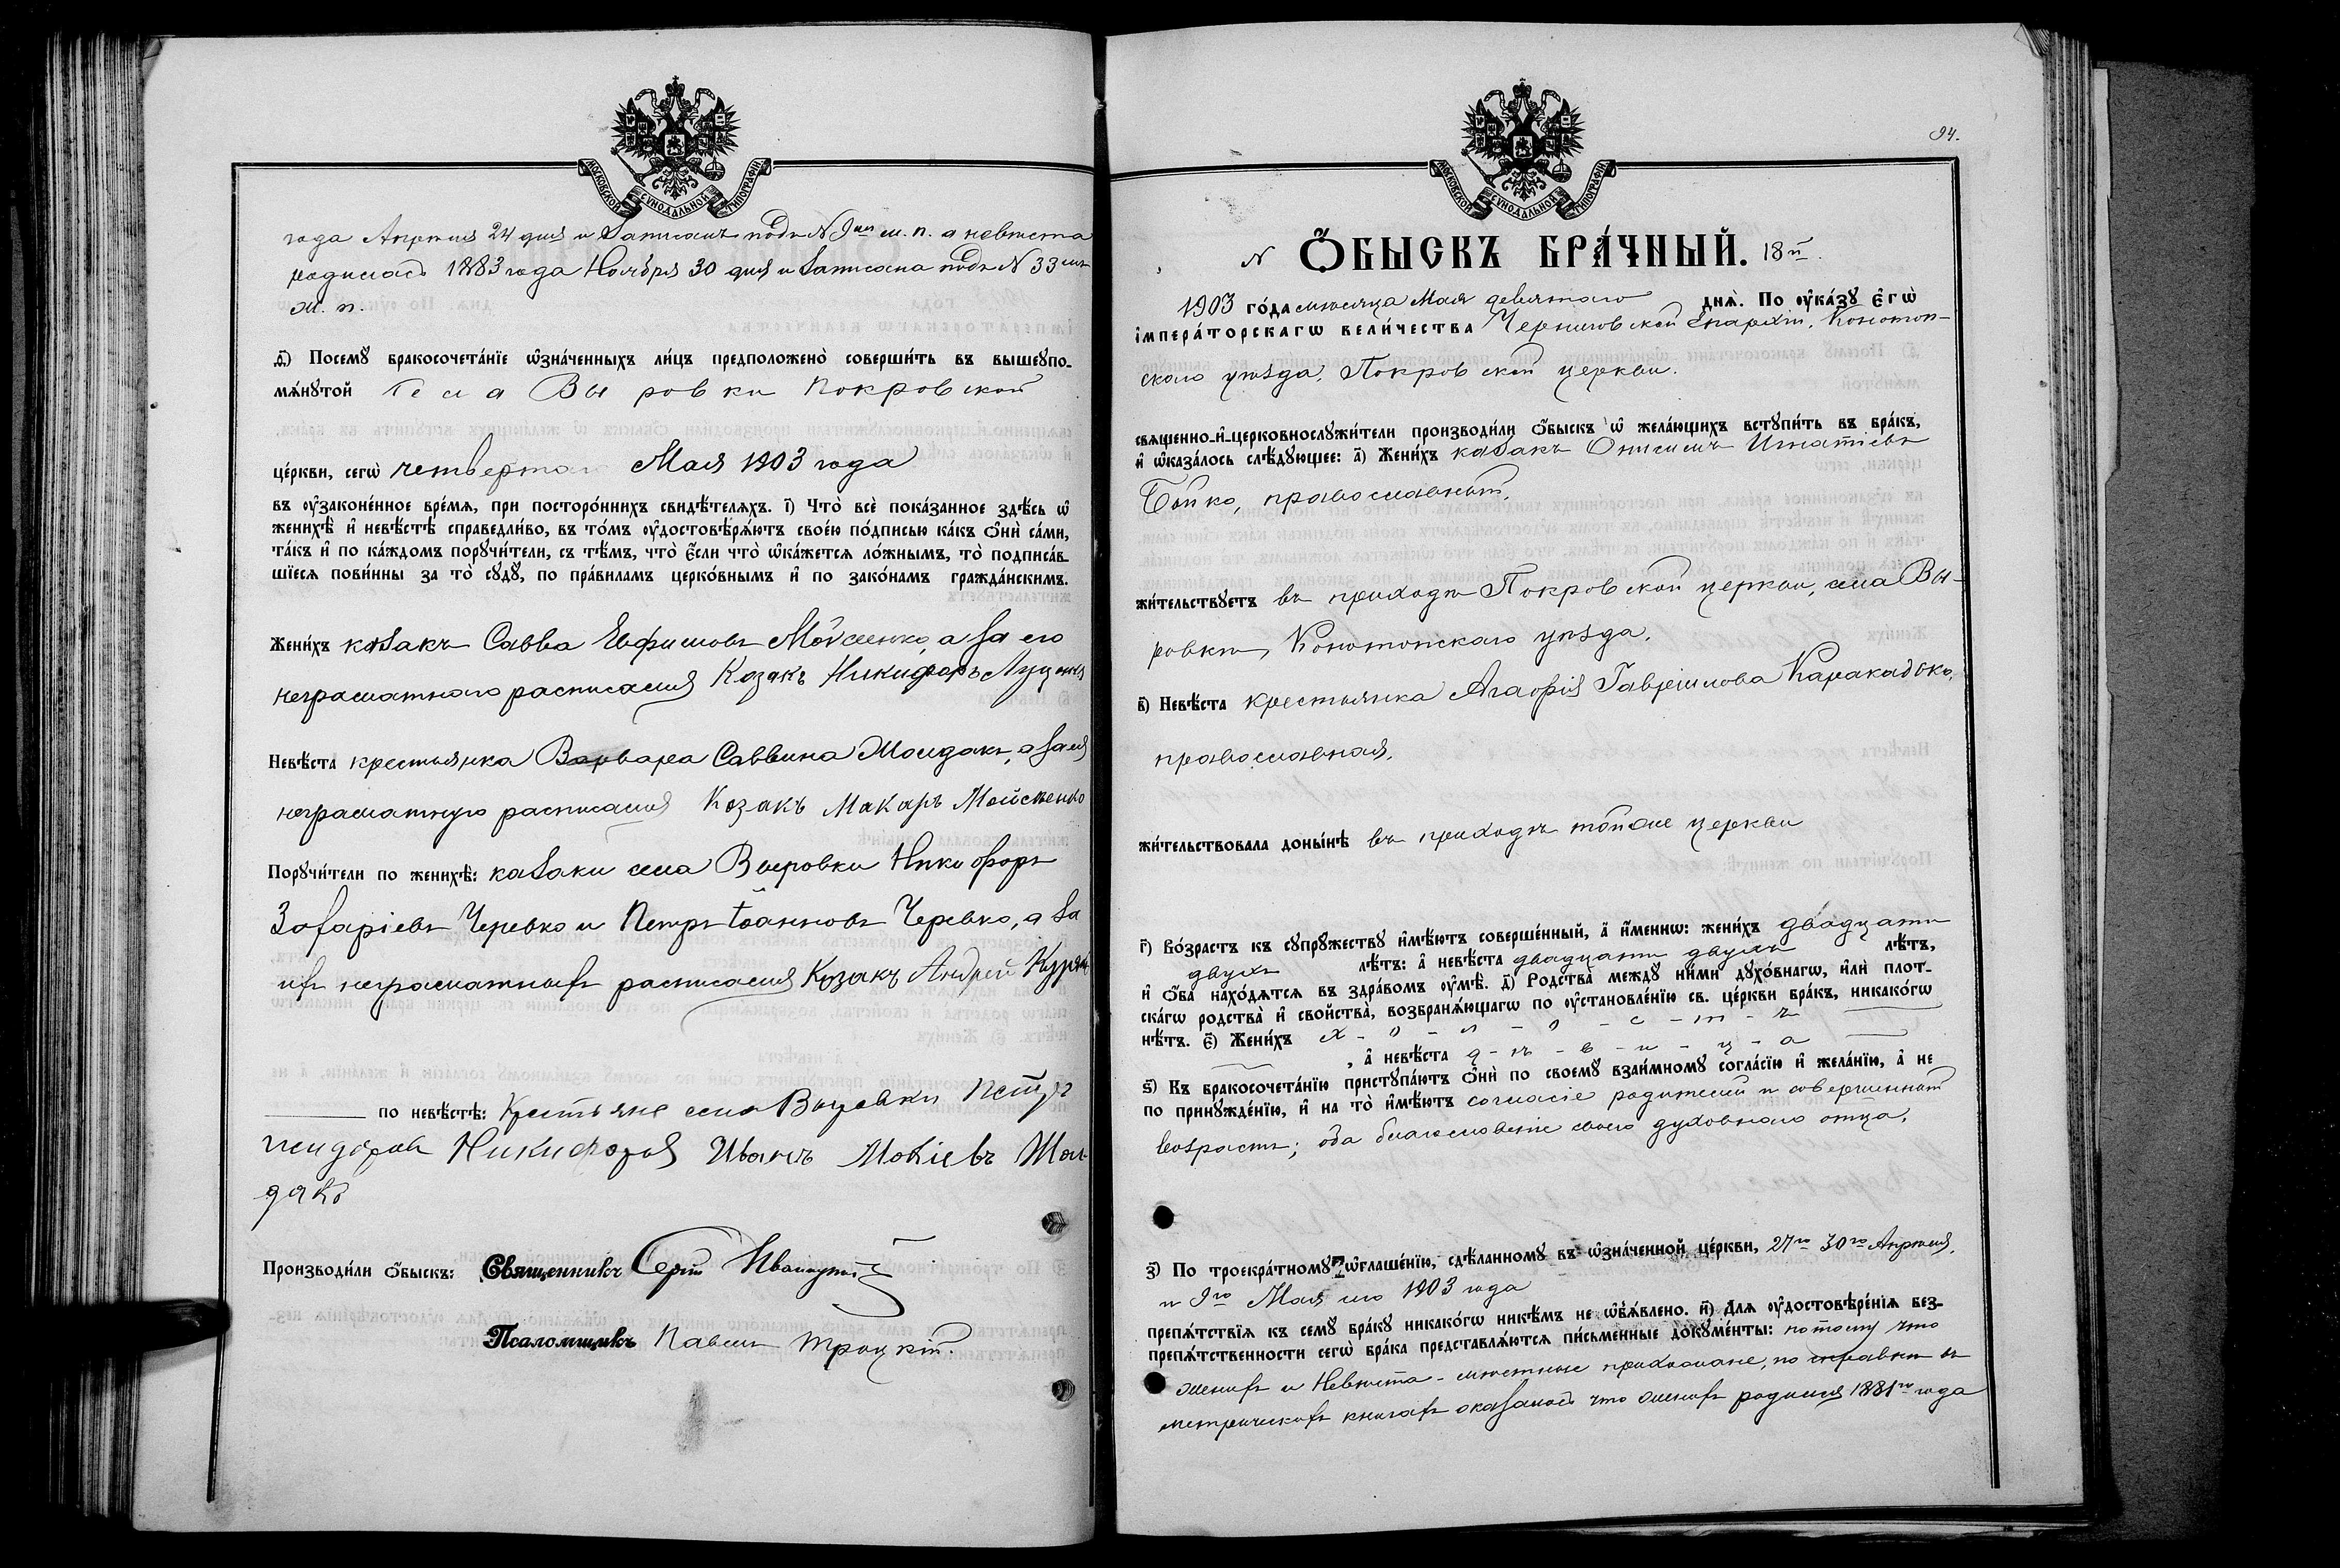 МОСКОВСКОЙ СѴНОДАЛЬНОЙ ТИПОГРАФІИ
года Апрѣля 24 дня и записанъ подъ № 9мъ м. п. а невѣста
родилась 1883 года Ноября 30 дня и записана подъ № 33мъ
ж. п.
д҃) Посемꙋ бракосочета́нїе ѡ҆зна́ченныхъ ли́цъ предположено̀ соверши́ть въ вышеꙋпо-
мѧ́нꙋтой села Выровки Покровской
це́ркви, сегѡ̀ четвертаго Мая 1903 года
въ ᲂу҆законе́нное вре́мѧ, при посторо́ннихъ свидѣ́телѧхъ. і҃) Что̀ всѐ пока́занное здѣ́сь ѡ҆
женихѣ̀ и҆ невѣ́стѣ справедли́во, въ то́мъ ᲂу҆достовѣрѧ́ютъ свое́ю по́дписью ка́къ ѻ҆нѝ са́ми,
та́къ и҆ по ка́ждомъ порꙋчи́тели, съ тѣ́мъ, что̀ є҆́сли что̀ ѡ҆ка́жетсѧ ло́жнымъ, то̀ подписа́в-
шїесѧ пови́нны за то̀ сꙋдꙋ̀, по пра́виламъ церко́внымъ и҆ по зако́намъ гражда́нскимъ.
Жени́хъ козакъ Савва Евфимовъ Мойсѣенко, а за его
неграматнаго расписался Козакъ Никифоръ Луценко
Невѣ́ста крестьянка Варвара Саввина Молдакъ, а за нея
неграматную расписался Козакъ Макаръ Мойсѣенко
Порꙋчи́тели по женихѣ̀: казаки села Выровки Никифоръ
Захаріевъ Черевко и Петръ Іоанновъ Черевко, а за
ихъ неграматныхъ расписался Козакъ Андрей
по невѣ́стѣ: Крестьяне села Выровки Петръ
Никифоровъ Иванъ Мокіевъ Мол-
дакъ
Производи́ли ѻ҆́быскъ: Священникъ Сергій
Псаломщикъ Павелъ Троцкій.
94.
МОСКОВСКОЙ СѴНОДАЛЬНОЙ ТИПОГРАФІИ
N Ѻ҆́БЫСКЪ БРА́ЧНЫЙ. 18й.
1903 го́да мѣсяца Мая девятаго днѧ̀. По ᲂу҆ка́зꙋ є҆гѡ̀
і҆мпера́торскагѡ вели́чества Черниговской Епархіи, Конотоп-
скаго уѣзда, Покровской церкви.
свѧще́нно-и҆-церковнослꙋжи́тели производи́ли ѻ҆́быскъ ѡ҆ жела́ющихъ встꙋпи́ть въ бра́къ,
и҆ ѡ҆каза́лось слѣ́дꙋющее: а҃) Жени́хъ казакъ Онисимъ Игнатіевъ
Бойко, православный,
жи́тельствꙋетъ въ приходѣ Покровской церкви, села Вы-
ровки, Конотопскаго уѣзда.
в҃) Невѣ́ста крестьянка Агафія Гавріилова
православная,
жи́тельствовала доны́нѣ въ приходѣ тойже церкви
г҃) Во́зрастъ къ сꙋпрꙋ́жествꙋ и҆мѣ́ютъ соверше́нный, а҆ и҆́менно: жени́хъ двадцати
двухъ лѣ́тъ: а҆ невѣ́ста двадцати двухъ лѣ́тъ,
и҆ ѻ҆́ба нахо́дѧтсѧ въ здра́вомъ ᲂу҆мѣ̀. д҃) Родства̀ междꙋ ни́ми дꙋхо́внагѡ, и҆лѝ плот-
ска́гѡ родства̀ и҆ сво́йства, возбранѧ́ющагѡ по ᲂу҆становле́нїю св. це́ркви бра́къ, никако́гѡ
нѣ́тъ. є҃) Жени́хъ х-о-л-о-с-т-ъ
, а҆ невѣ́ста д-ѣ-в-и-ц-а
ѕ҃) Къ бракосочета́нїю пристꙋпа́ютъ ѻ҆нѝ по своемꙋ̀ взаи́мномꙋ согла́сїю и҆ жела́нїю, а҆ не
по принꙋжде́нїю, и҆ на то̀ и҆мѣ́ютъ согласіе родителей и совершенный
возрастъ; оба благословеніе своего духовнаго отца.
з҃) По троекра́тномꙋ ѡ҆глаше́нїю, сдѣ́ланномꙋ въ ѡ҆зна́ченной це́ркви, 27го 30го Апрѣля,
и 9го Мая сего 1903 года
препѧ́тствїѧ къ семꙋ̀ бра́кꙋ никако́гѡ никѣ́мъ не ѡ҆б̾ѧ́влено. и҃) Длѧ ᲂу҆достовѣре́нїѧ без-
препѧ́тственности сегѡ̀ бра́ка представлѧ́ютсѧ пи́сьменные докꙋме́нты: потому что
женихъ и невѣста - мѣстные прихожане, по справкѣ въ
метрическихъ книгахъ оказалось что женихъ родился 1881го года